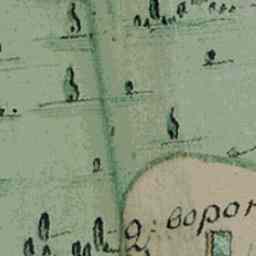 2: ворон